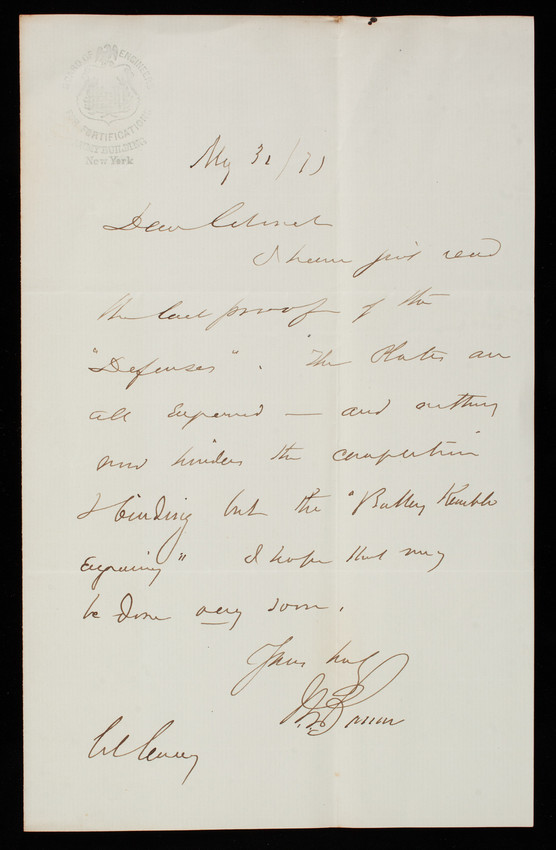 BOARD OF ENGINEERS
FOR FORTIFICATIONS
ARMY BUILDING
New York
My 31/71
Dear Colonel
I have just read
the last proof of the
"Defenses". The Plates are
all Engraved — and nothing
now hinders the completion
& binding but the "Battery Kemble
Engraving" I hope that may
be done very soon.
Yours truly
J G Barnard
Col Casey